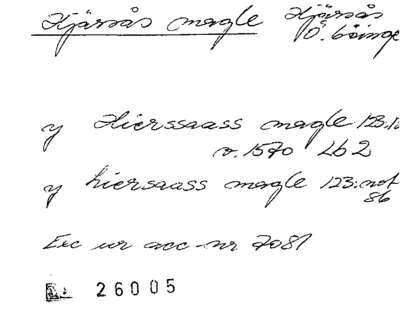 Hjärsås magle Hjärsås
Ö. Göinge
y Hierssaass magle 123:1
v. 1570 Lb 2
y hiersaass magle 123: not
86
Exc ur acc-nr 7081
26005